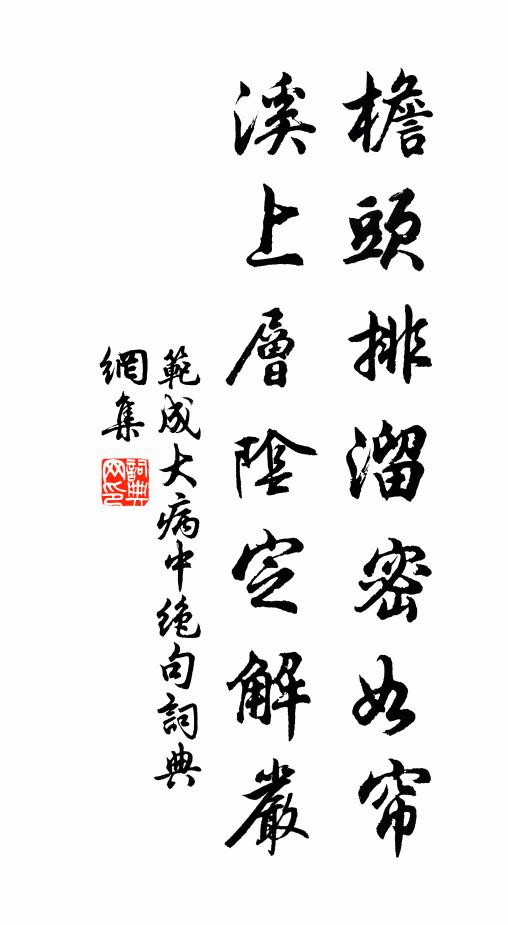 檐頭排溜密如帘
溪上層陰定解嚴
範成大病中絶句詞典
網集
詞典網印